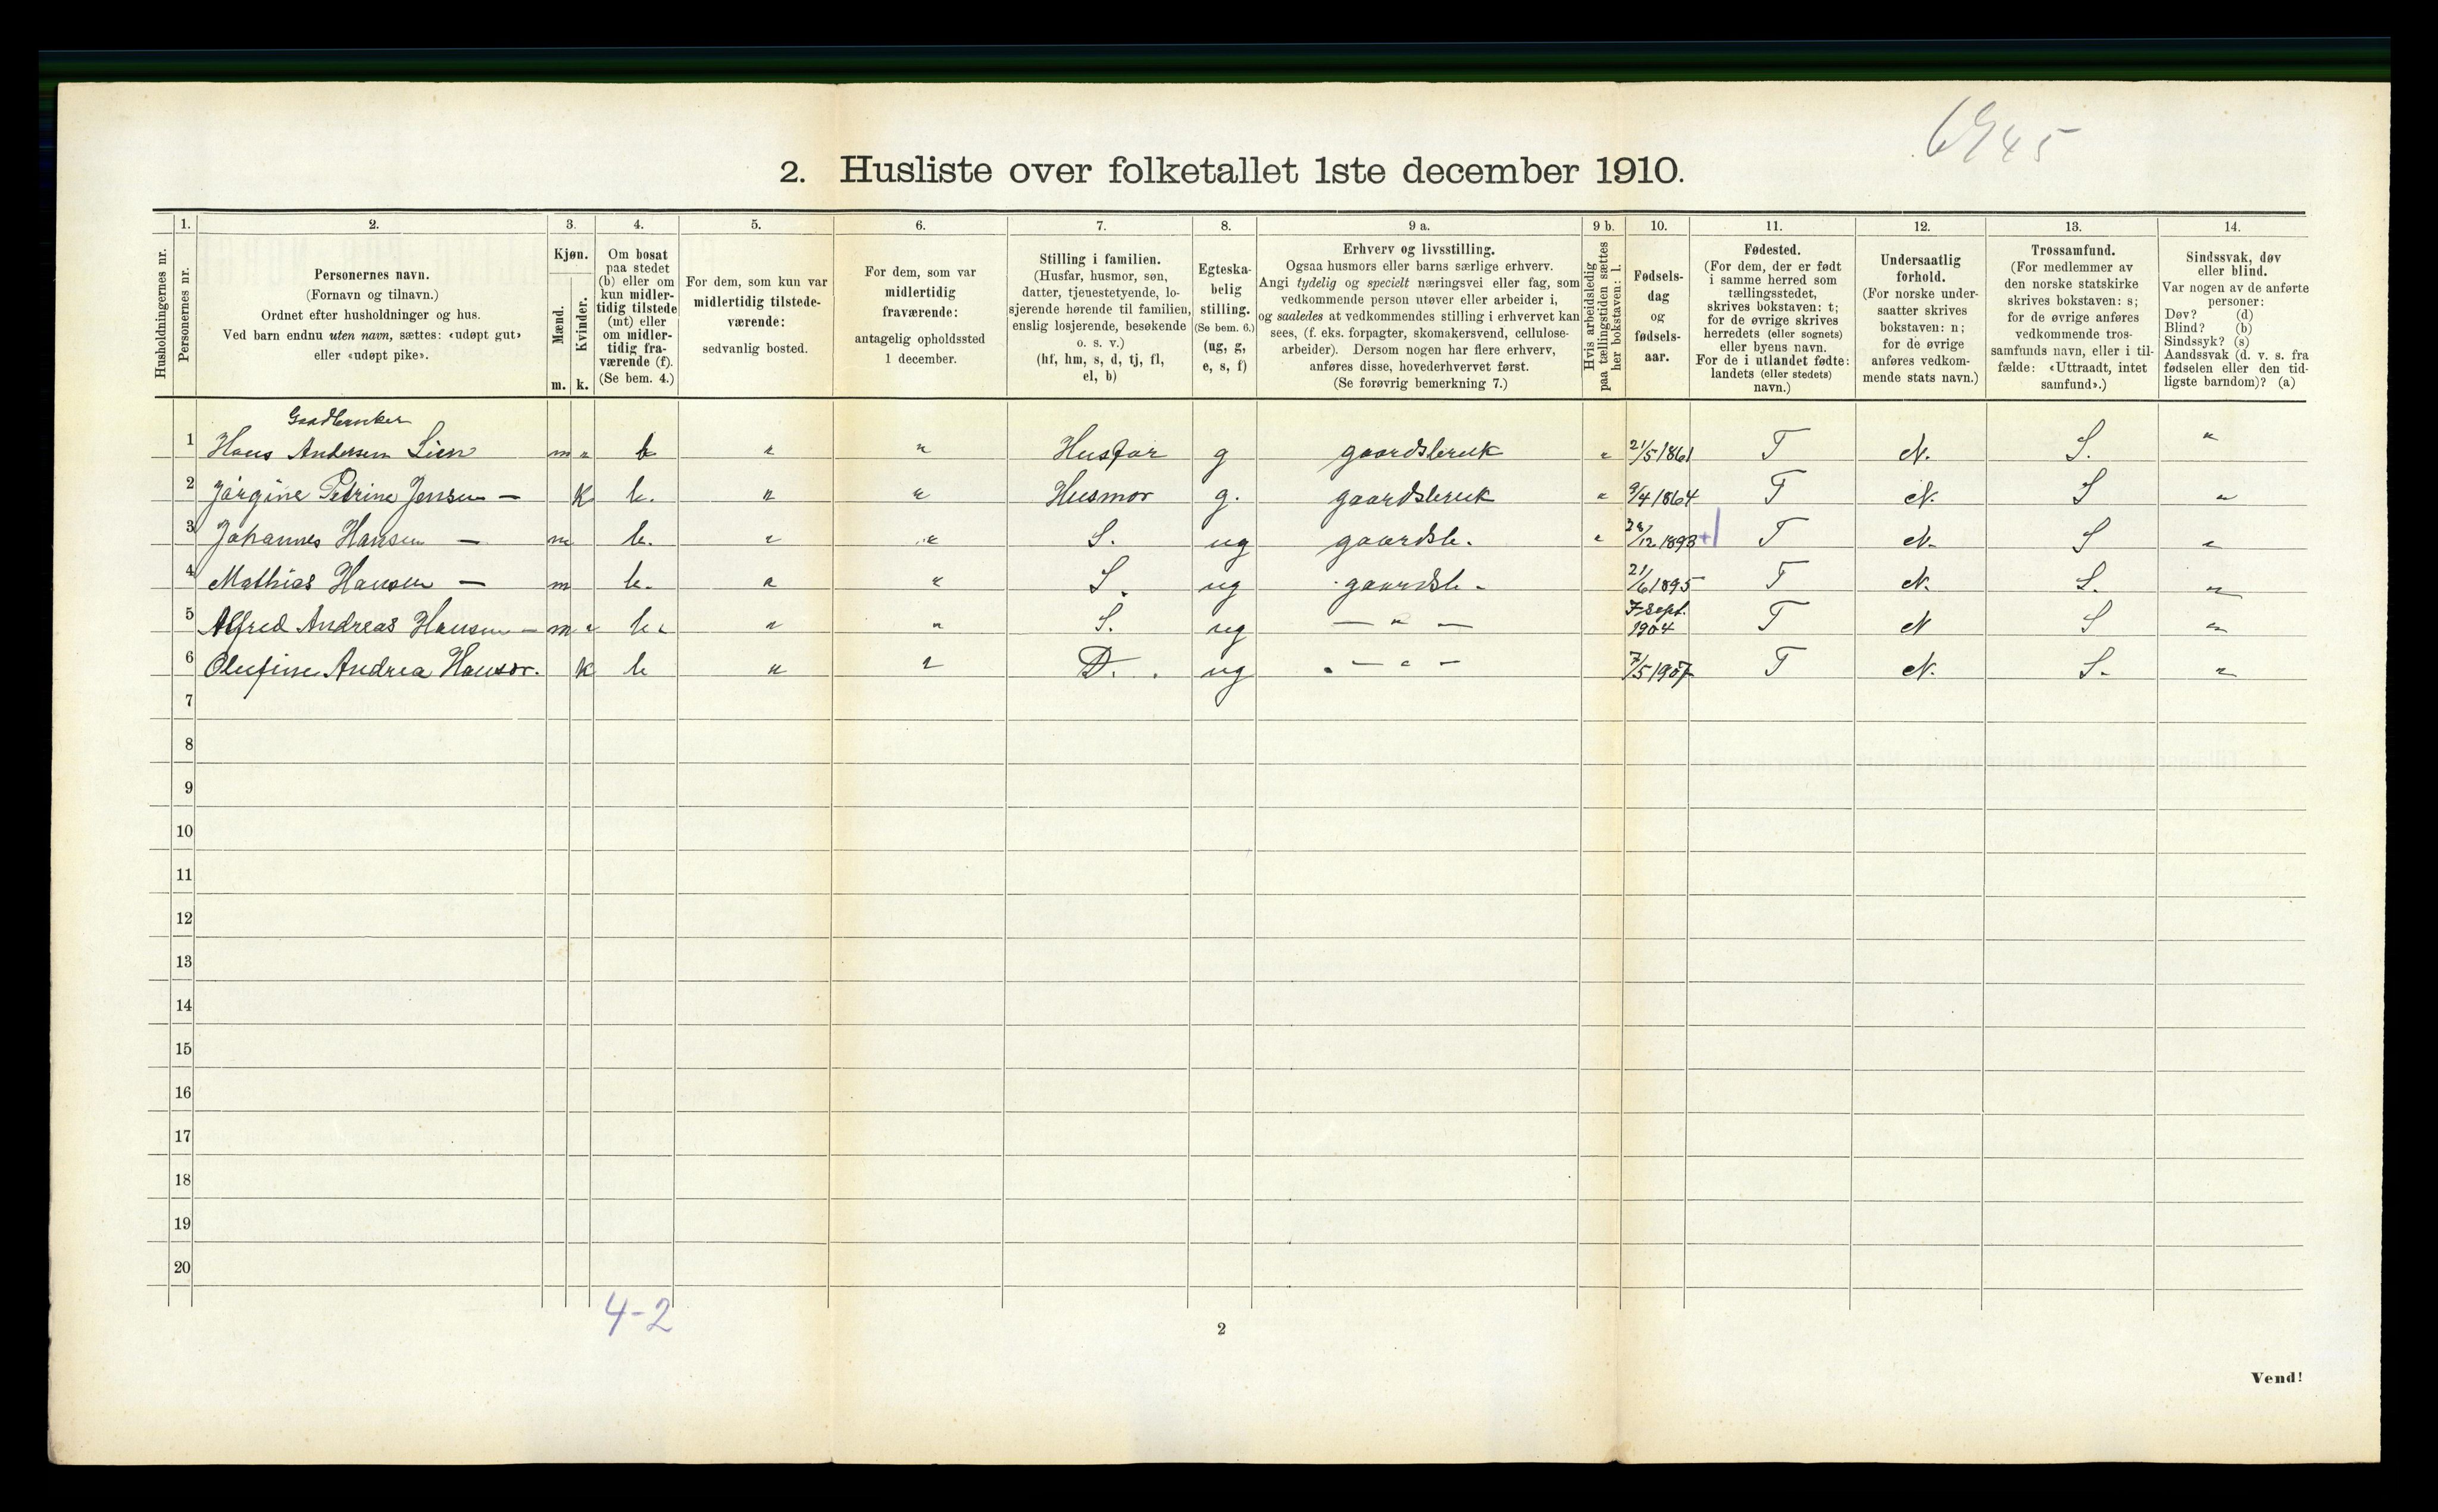 6945
2. Husliste over folketallet 1ste december 1910.
Husholdningernes nr.
1.
Personernes nr.
2.
Personernes navn.
(Fornavn og tilnavn.)
Ordnet efter husholdninger og hus.
Ved barn endnu uten navn, sættes: «udøpt gut»
eller «udøpt pike».
3.
Kjøn.
Mænd.
Kvinder.
m. k.
4.
Om bosat
paa stedet
(b) eller om
kun midler-
tidig tilstede
(mt) eller
om midler-
tidig fra-
værende (f).
(Se bem. 4.)
5.
For dem, som kun var
midlertidig tilstede-
værende:
sedvanlig bosted.
6.
For dem, som var
midlertidig
fraværende:
antagelig opholdssted
1 december.
7.
Stilling i familien.
(Husfar, husmor, søn,
datter, tjenestetyende, lo-
sjerende hørende til familien,
enslig losjerende, besøkende
o. s. v.)
(hf, hm, s, d, tj, fl,
el, b)
8.
Egteska-
belig
stilling.
(Se bem. 6.)
(ug, g,
e, s, f)
9 a.
Erhverv og livsstilling.
Ogsaa husmors eller barns særlige erhverv.
Angi tydelig og specielt næringsvei eller fag, som
vedkommende person utøver eller arbeider i,
og saaledes at vedkommendes stilling i erhvervet kan
sees, (f. eks. forpagter, skomakersvend, cellulose-
arbeider). Dersom nogen har flere erhverv,
anføres disse, hovederhvervet først.
(Se forøvrig bemerkning 7.)
9 b.
Hvis arbeidsledig
paa tællingstiden sættes
her bokstaven: l.
10.
Fødsels-
dag
og
fødsels-
aar.
11.
Fødested.
(For dem, der er født
i samme herred som
tællingsstedet,
skrives bokstaven: t;
for de øvrige skrives
herredets (eller sognets)
eller byens navn.
For de i utlandet fødte:
landets (eller stedets)
navn.)
12.
Undersaatlig
forhold.
(For norske under-
saatter skrives
bokstaven: n;
for de øvrige
anføres vedkom-
mende stats navn.)
13.
Trossamfund.
(For medlemmer av
den norske statskirke
skrives bokstaven: s;
for de øvrige anføres
vedkommende tros-
samfunds navn, eller i til-
fælde: «Uttraadt, intet
samfund».)
14.
Sindssvak, døv
eller blind.
Var nogen av de anførte
personer:
Døv? (d)
Blind? (b)
Sindssyk? (s)
Aandssvak (d. v. s. fra
fødselen eller den tid-
ligste barndom)? (a)
1 Hans Andersen Lien m " b " " Husfar g gaardsbruk " 21/5 1861 T N. S. "
2 Jørgine Petrine Jensen — K b. " " Husmor g. gaardsbruk " 9/4 1864 T N. S "
3 Johannes Hansen — m b. " " S. ug gaardsb. " 28/12 1893 +1 T N. S "
4 Mathias Hansen — m b. " " S. ug gaardsb. 21/6 1895 T N. S. "
5 Alfred Andreas Hansen — m " b. " " S. ug — " — 7 Sept. 1904 T N S "
6 Olufine Andrea Hansor. K b " " D. ug — " — 7/5 1907 T N. S. "
7
8
9
10
11
12
13
14
15
16
17
18
19
20
4-2
2
Vend!